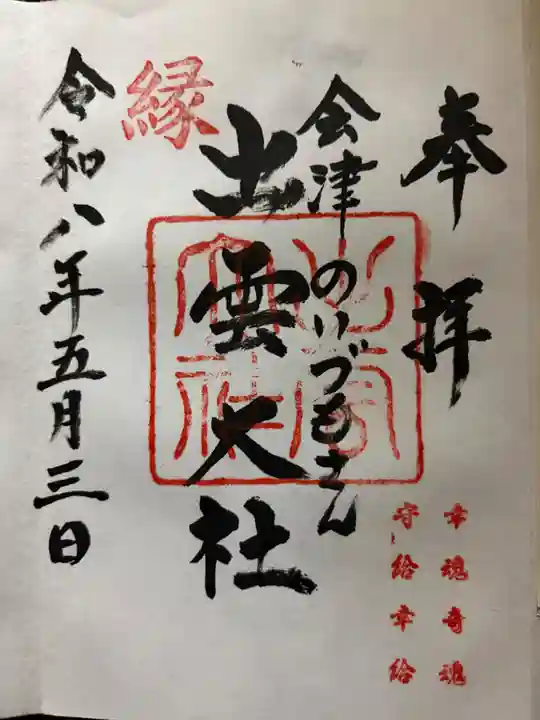 奉拝
会津のいづもさん
出雲大社
縁
令和八年五月三日
幸魂奇魂
守給幸給
出雲大社